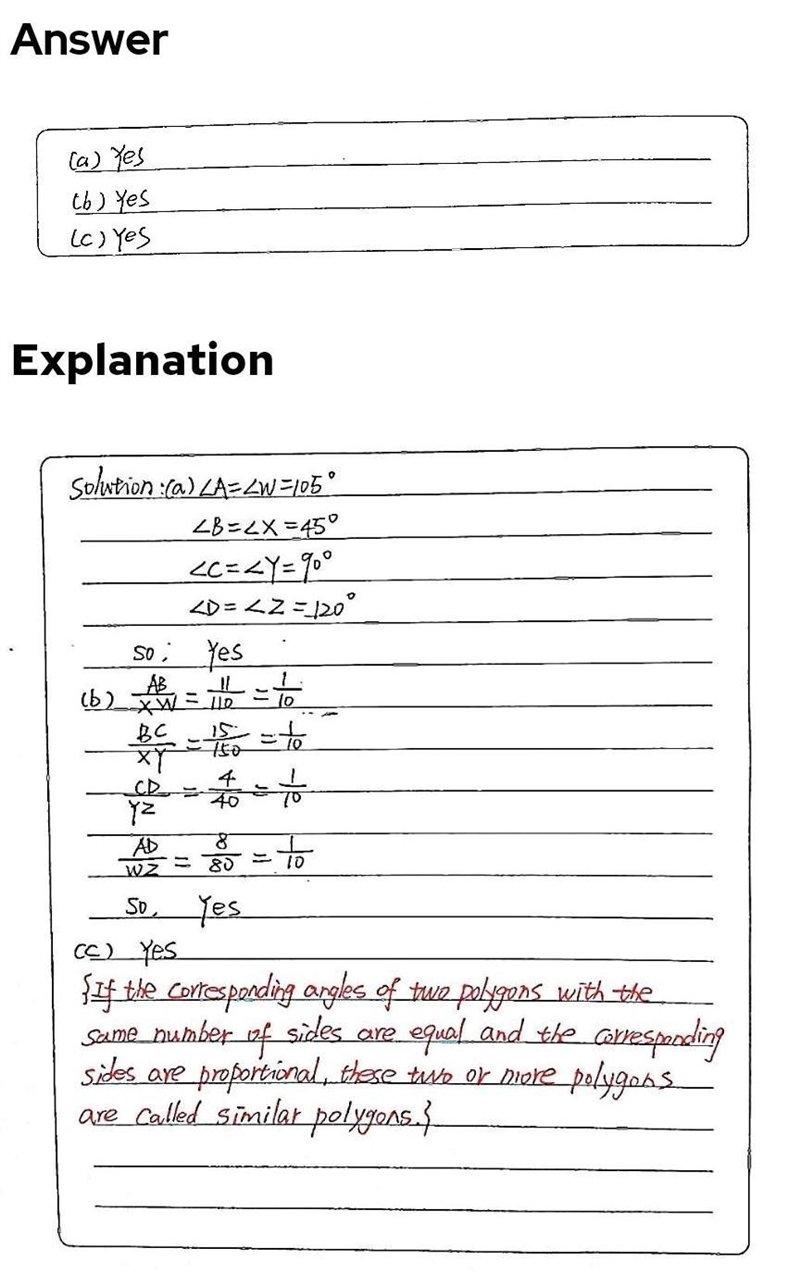 Answer
(a) Yes
(b) Yes
(c) Yes
Explanation
Solution:(a)∠A=∠W=105°
∠B=∠X=45°
∠C=∠Y=90°
∠D=∠Z=120°
so; Yes
(b) AB/XW = 11/110 = 1/10
BC/XY = 15/150 = 1/10
CD/YZ = 4/40 = 1/10
AD/WZ = 8/80 = 1/10
so, Yes
(c) Yes
{If the corresponding angles of two polygons with the
same number of sides are equal and the corresponding
sides are proportional, these two or more polygons
are called similar polygons.}